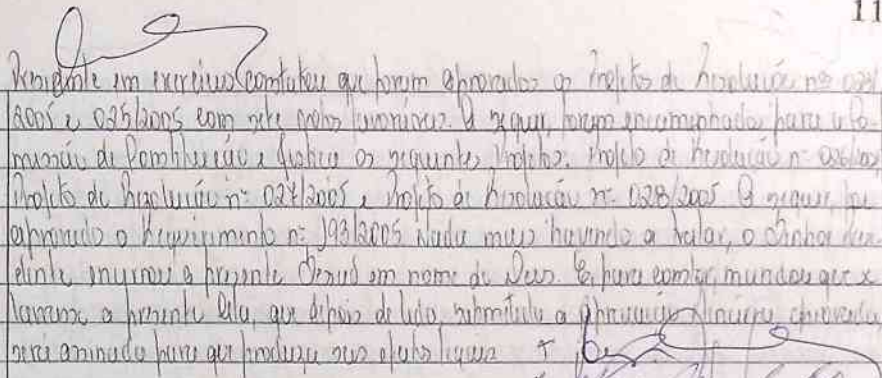 11
Presidente em exercício constatou que foram aprovados os Projetos de Resolução nºs 024/
2005 e 025/2005 com sete votos favoráveis. A seguir, foram encaminhados para a Co-
missão de Constituição e Justiça os seguintes Projetos: Projeto de Resolução nº 026/2005
Projeto de Resolução nº 027/2005 e Projeto de Resolução nº 028/2005 A seguir, foi
aprovado o Requerimento nº 193/2005 Nada mais havendo a tratar, o Senhor Pre-
sidente encerrou a presente Sessão em nome de Deus. E, para constar, mandou que se
lavrasse a presente Ata, que depois de lida, submetida a apreciação Plenária aprovada
será assinada para que produza seus efeitos legais